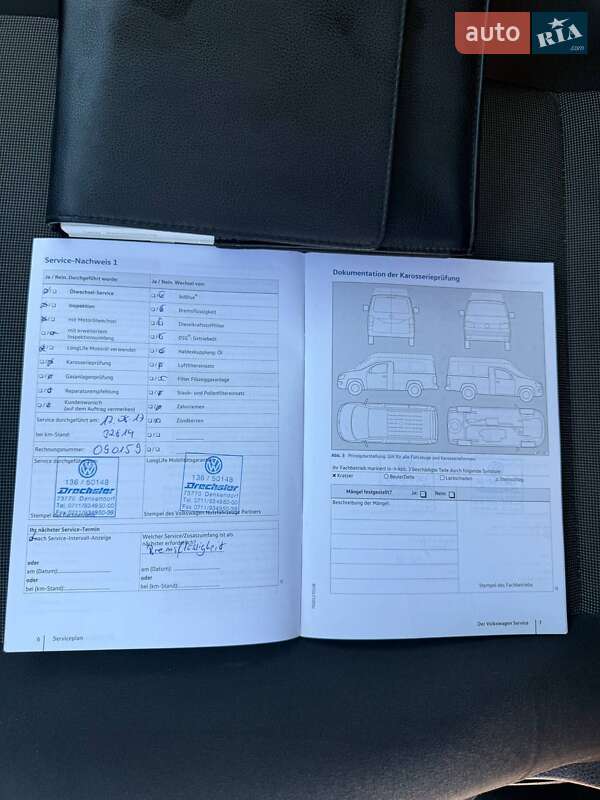 auto RIA .com
Service-Nachweis 1
Ja / Nein. Durchgeführt wurde:
Ja / Nein. Wechsel von:
Ölwechsel-Service
AdBlue®
Inspektion
Bremsflüssigkeit
mit Motorölwechsel
Dieselkraftstofffilter
mit erweitertem
Inspektionsumfang
DSG®-Getriebeöl
LongLife Motoröl verwendet
Haldexkupplung: Öl
Karosserieprüfung
Luftfiltereinsatz
Gasanlagenprüfung
Filter Flüssiggasanlage
Reparaturempfehlung
Staub- und Pollenfiltereinsatz
Kundenwunsch
(auf dem Auftrag vermerken)
Zahnriemen
Service durchgeführt am:
Zündkerzen
bei km-Stand: 32614
Rechnungsnummer: 090159
Service durchgeführt
LongLife Mobilitätsgarantie
136 / 50148
Drechsler
73770 Denkendorf
Tel. 0711/934950-00
Fax 0711/934950-99
136 / 50148
Drechsler
73770 Denkendorf
Tel. 0711/934950-00
Fax 0711/934950-99
Stempel des
Stempel des Volkswagen Nutzfahrzeuge Partners
Ihr nächster Service-Termin
nach Service-Intervall-Anzeige
Welcher Service/Zusatzumfang ist als
nächster erforderlich?
Bremsflüssigkeit
oder
am (Datum):
am (Datum):
oder
oder
bei (km-Stand):
bei (km-Stand):
6 Serviceplan
Dokumentation der Karosserieprüfung
Abb. 3 Prinzipdarstellung: Gilt für alle Fahrzeuge und Karosserieformen.
Kratzer
Beule/Delle
Lackschaden
Steinschlag
Mängel festgestellt? Ja: Nein:
Beschreibung der Mängel:
Stempel des Fachbetriebs
Der Volkswagen Service 7